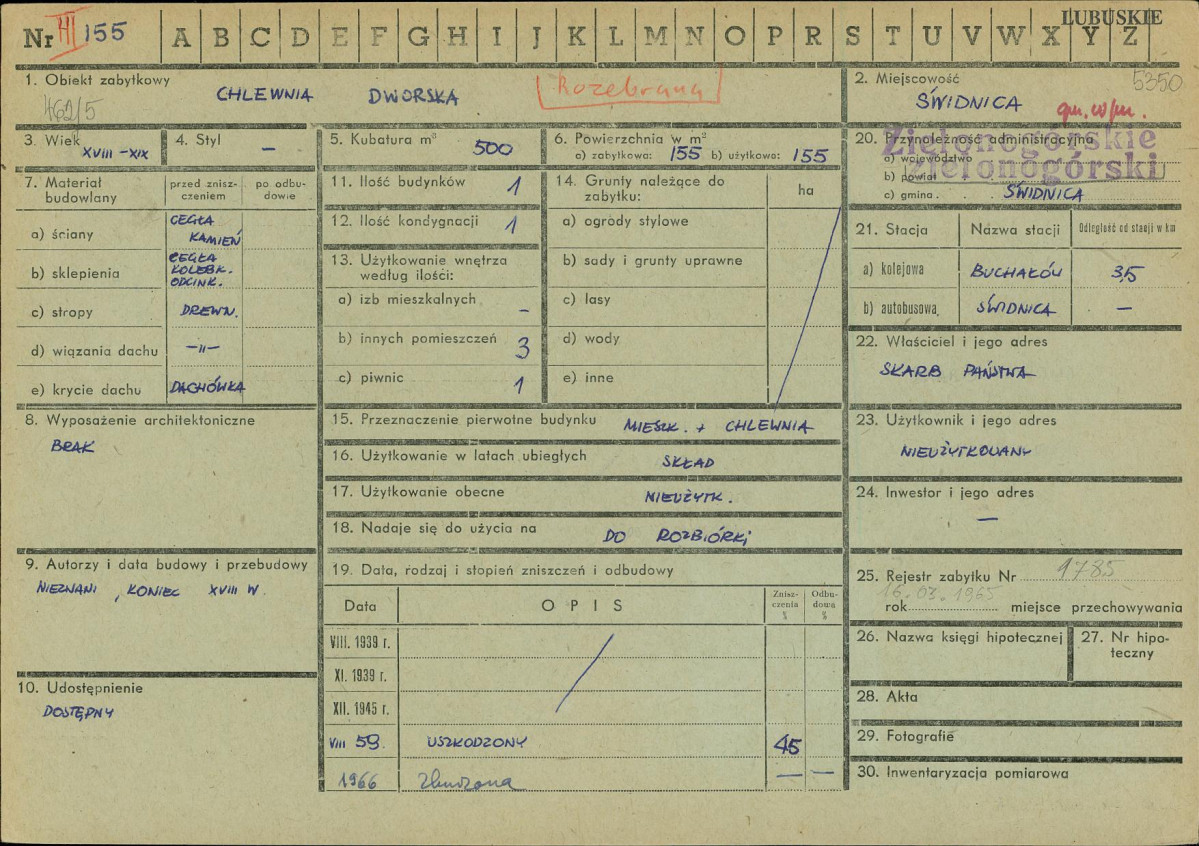 Nr III 155 A B C D E F G H I J K L M N O P R S T U V W X Y Z
LUBUSKIE
1. Obiekt zabytkowy
CHLEWNIA DWORSKA
rozebrana
462/5
2. Miejscowość
5350
ŚWIDNICA
gm. w/m.
3. Wiek
XVIII – XIX
4. Styl
–
5. Kubatura m³
500
6. Powierzchnia w m²
a) zabytkowa: 155 b) użytkowa: 155
20. Przynależność administracyjna
a) województwo Zielonogórskie
b) powiat zielonogórski
c) gmina ŚWIDNICA
7. Materiał budowlany
przed znisz-
czeniem
po odbu-
dowie
a) ściany
CEGŁA
KAMIEŃ
b) sklepienia
CEGŁA
KOLEBK.
ODCINK.
c) stropy
DREWN.
d) wiązania dachu
–"–
e) krycie dachu
DACHÓWKA
8. Wyposażenie architektoniczne
BRAK
9. Autorzy i data budowy i przebudowy
NIEZNANI, KONIEC XVIII W.
10. Udostępnienie
DOSTĘPNY
11. Ilość budynków 1
12. Ilość kondygnacji 1
13. Użytkowanie wnętrza
według ilości:
a) izb mieszkalnych –
b) innych pomieszczeń 3
c) piwnic 1
14. Grunty należące do
zabytku:
ha
a) ogrody stylowe
b) sady i grunty uprawne
c) lasy
d) wody
e) inne
15. Przeznaczenie pierwotne budynku MIESZK. + CHLEWNIA
16. Użytkowanie w latach ubiegłych SKŁAD
17. Użytkowanie obecne NIEUŻYTK.
18. Nadaje się do użycia na DO ROZBIÓRKI
19. Data, rodzaj i stopień zniszczeń i odbudowy
Data
OPIS
Znisz-
czenia
%
Odbu-
dowa
%
VIII. 1939 r.
XI. 1939 r.
XII. 1945 r.
VIII 59. USZKODZONY 45
1966 zburzona – –
21. Stacja
Nazwa stacji
Odległość od stacji w km
a) kolejowa BUCHAŁÓW 3,5
b) autobusowa ŚWIDNICA –
22. Właściciel i jego adres
SKARB PAŃSTWA
23. Użytkownik i jego adres
NIEUŻYTKOWANY
24. Inwestor i jego adres
–
25. Rejestr zabytku Nr 1785
16.03.1965
rok miejsce przechowywania
26. Nazwa księgi hipotecznej
27. Nr hipo-
teczny
28. Akta
29. Fotografie
30. Inwentaryzacja pomiarowa